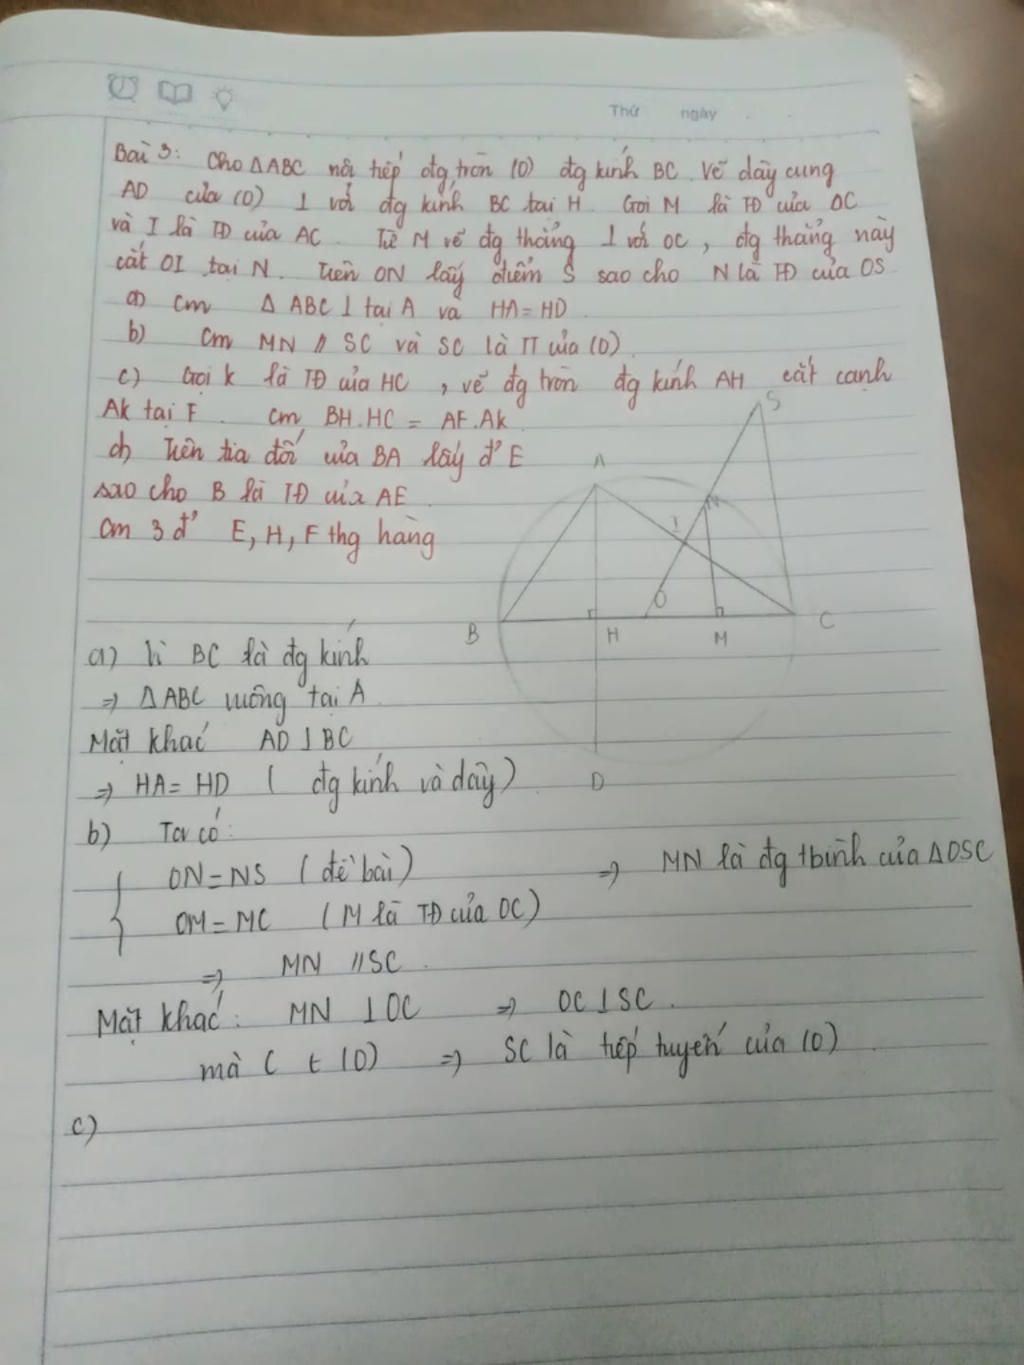 Thứ ngày
Bài 3: Cho ΔABC nội tiếp đg tròn (O) đg kính BC. Vẽ dây cung
AD của (O) ⊥ với đg kính BC tại H. Gọi M là TĐ của OC
và I là TĐ của AC. Từ M vẽ đg thẳng ⊥ với OC, đg thẳng này
cắt OI tại N. Trên ON lấy điểm S sao cho N là TĐ của OS
a) Cm Δ ABC ⊥ tại A và HA = HD.
b) Cm MN // SC và SC là TT của (O).
c) Gọi K là TĐ của HC, vẽ đg tròn đg kính AH cắt cạnh
AK tại F. Cm BH.HC = AF.AK.
d) Trên tia đối của BA lấy đ' E
sao cho B là TĐ của AE.
Cm 3 đ' E, H, F thg hàng
S
A
N
I
O
B
H
M
C
D
a) Vì BC là đg kính
⇒ ΔABC vuông tại A.
Mặt khác AD ⊥ BC
⇒ HA = HD ( đg kính và dây)
b) Ta có:
{ ON = NS (đề bài) ⇒ MN là đg tbình của ΔOSC
OM = MC (M là TĐ của OC)
⇒ MN // SC.
Mặt khác: MN ⊥ OC ⇒ OC ⊥ SC.
mà C ∈ (O) ⇒ SC là tiếp tuyến của (O).
c)